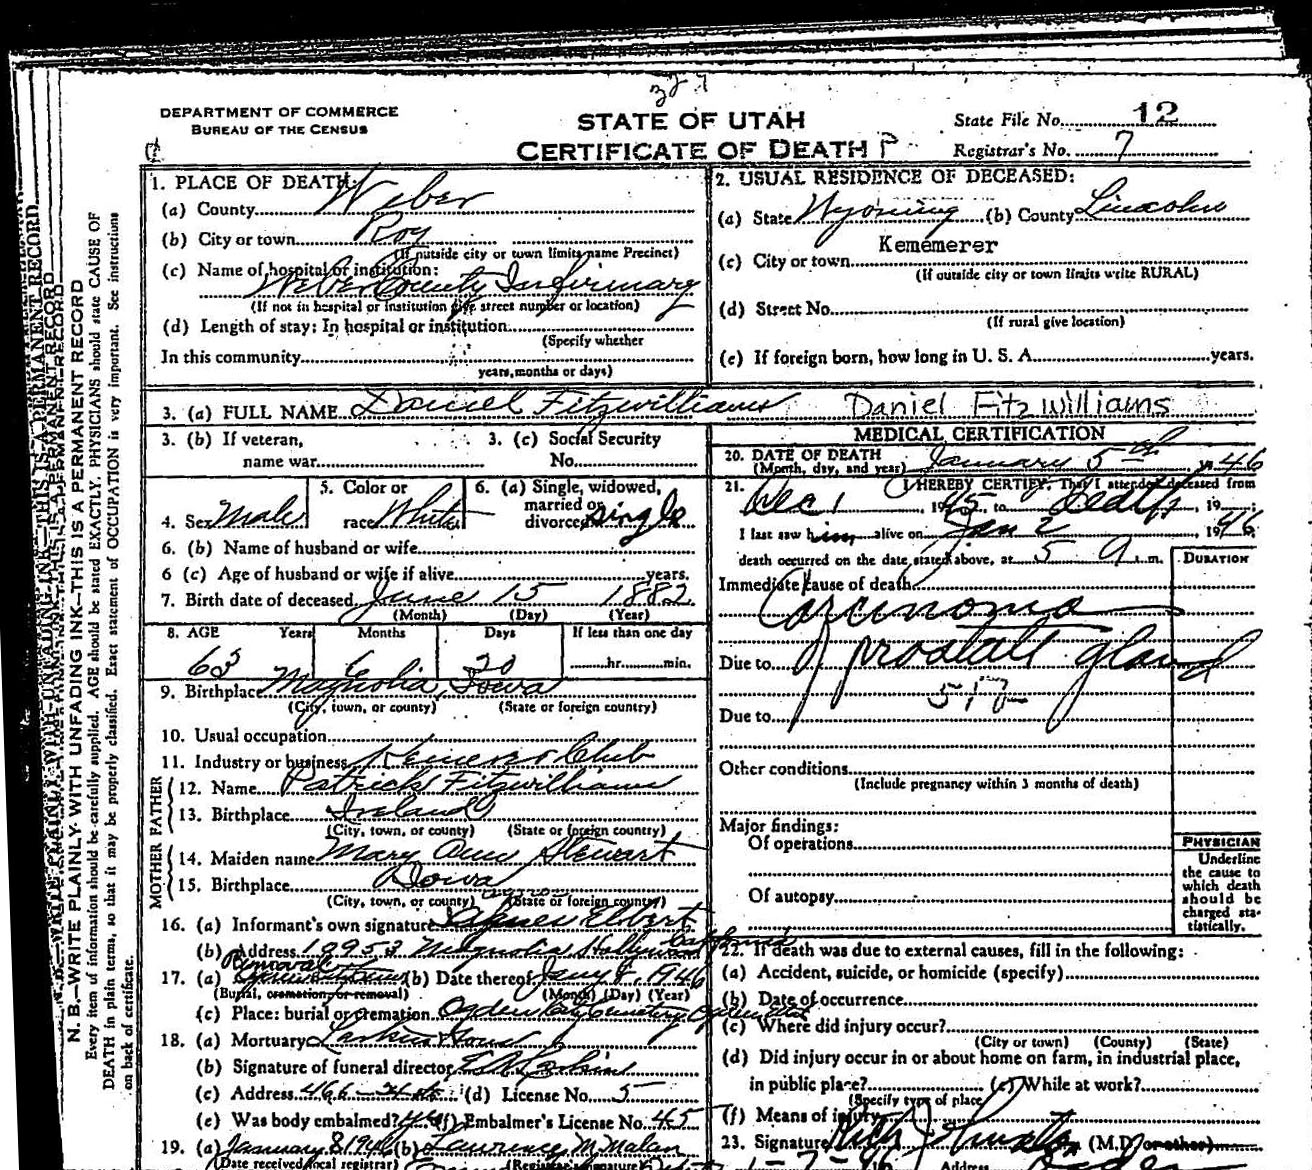 DEPARTMENT OF COMMERCE
BUREAU OF THE CENSUS
STATE OF UTAH
CERTIFICATE OF DEATH P
State File No. 12
Registrar's No. 7
N. B.—WRITE PLAINLY WITH UNFADING INK—THIS IS A PERMANENT RECORD
Every item of information should be carefully supplied. AGE should be stated EXACTLY. PHYSICIANS should state CAUSE OF
DEATH in plain terms, so that it may be properly classified. Exact statement of OCCUPATION is very important. See instructions
on back of certificate.
1. PLACE OF DEATH:
(a) County Weber
(b) City or town Roy
(If outside city or town limits name Precinct)
(c) Name of hospital or institution:
Weber County Infirmary
(If not in hospital or institution give street number or location)
(d) Length of stay: In hospital or institution
(Specify whether
In this community
years, months or days)
2. USUAL RESIDENCE OF DECEASED:
(a) State Wyoming (b) County Lincoln
Kememerer
(c) City or town
(If outside city or town limits write RURAL)
(d) Street No.
(If rural give location)
(e) If foreign born, how long in U. S. A. years.
3. (a) FULL NAME Daniel Fitzwilliams Daniel Fitzwilliams
3. (b) If veteran,
name war
3. (c) Social Security
No.
4. Sex Male
5. Color or
race White
6. (a) Single, widowed,
married or
divorced single
6. (b) Name of husband or wife
6 (c) Age of husband or wife if alive years.
7. Birth date of deceased June 15 1882
(Month) (Day) (Year)
8. AGE Years Months Days If less than one day
63 6 20 hr. min.
9. Birthplace Magnolia, Iowa
(City, town, or county) (State or foreign country)
10. Usual occupation
11. Industry or business Club
FATHER
12. Name Patrick Fitzwilliams
13. Birthplace Ireland
(City, town, or county) (State or foreign country)
MOTHER
14. Maiden name Mary Ann Stewart
15. Birthplace Iowa
(City, town, or county) (State or foreign country)
16. (a) Informant's own signature Agnes Elbert
(b) Address 10953 Magnolia Hollywood California
17. (a) Removal (b) Date thereof Jany 1946
(Burial, cremation, or removal) (Month) (Day) (Year)
(c) Place: burial or cremation Ogden City Cemetery
18. (a) Mortuary Larkin
(b) Signature of funeral director Larkin
(c) Address 466—24 (d) License No. 5
(e) Was body embalmed? (f) Embalmer's License No. 45
19. (a) January 8 1946 (b) Lawrence M Malan
(Date received local registrar) (Registrar's signature)
MEDICAL CERTIFICATION
20. DATE OF DEATH
(Month, day, and year) January 5th 46
21. I HEREBY CERTIFY, That I attended deceased from
Dec 1, 1945, to death, 19
I last saw him alive on Jan 2, 1946
death occurred on the date stated above, at 5 a.m.
DURATION
Immediate cause of death
Carcinoma
Due to of prostatt gland
Due to
Other conditions
(Include pregnancy within 3 months of death)
Major findings:
Of operations
Of autopsy
PHYSICIAN
Underline
the cause to
which death
should be
charged sta-
tistically.
22. If death was due to external causes, fill in the following:
(a) Accident, suicide, or homicide (specify)
(b) Date of occurrence
(c) Where did injury occur?
(City or town) (County) (State)
(d) Did injury occur in or about home on farm, in industrial place,
in public place? (e) While at work?
(Specify type of place)
(f) Means of injury
23. Signature (M.D. or other)
1-7-46 Address